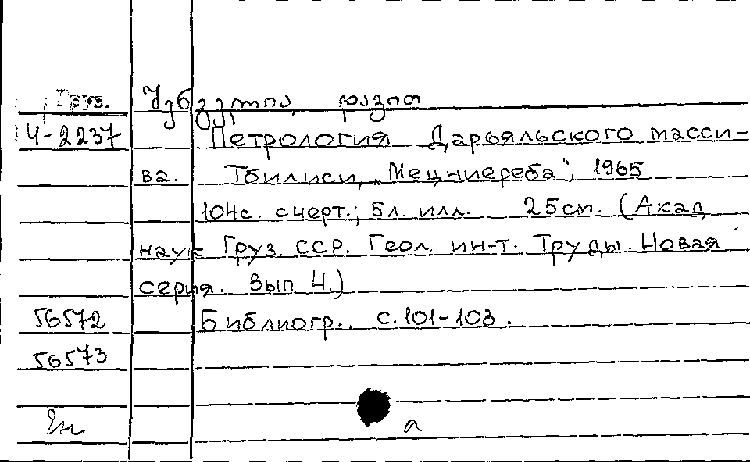 Груз. შუბლაძე
Ч-2237 Петрология Дарьяльского масси-
ва. Тбилиси, „Мецниереба", 1965
104с. с черт.; 5л. илл. 25см. (Акад.
наук Груз. ССР. Геол. ин-т. Труды. Новая
серия. Вып 4.)
56572 Библиогр.: с. 101-103.
56573